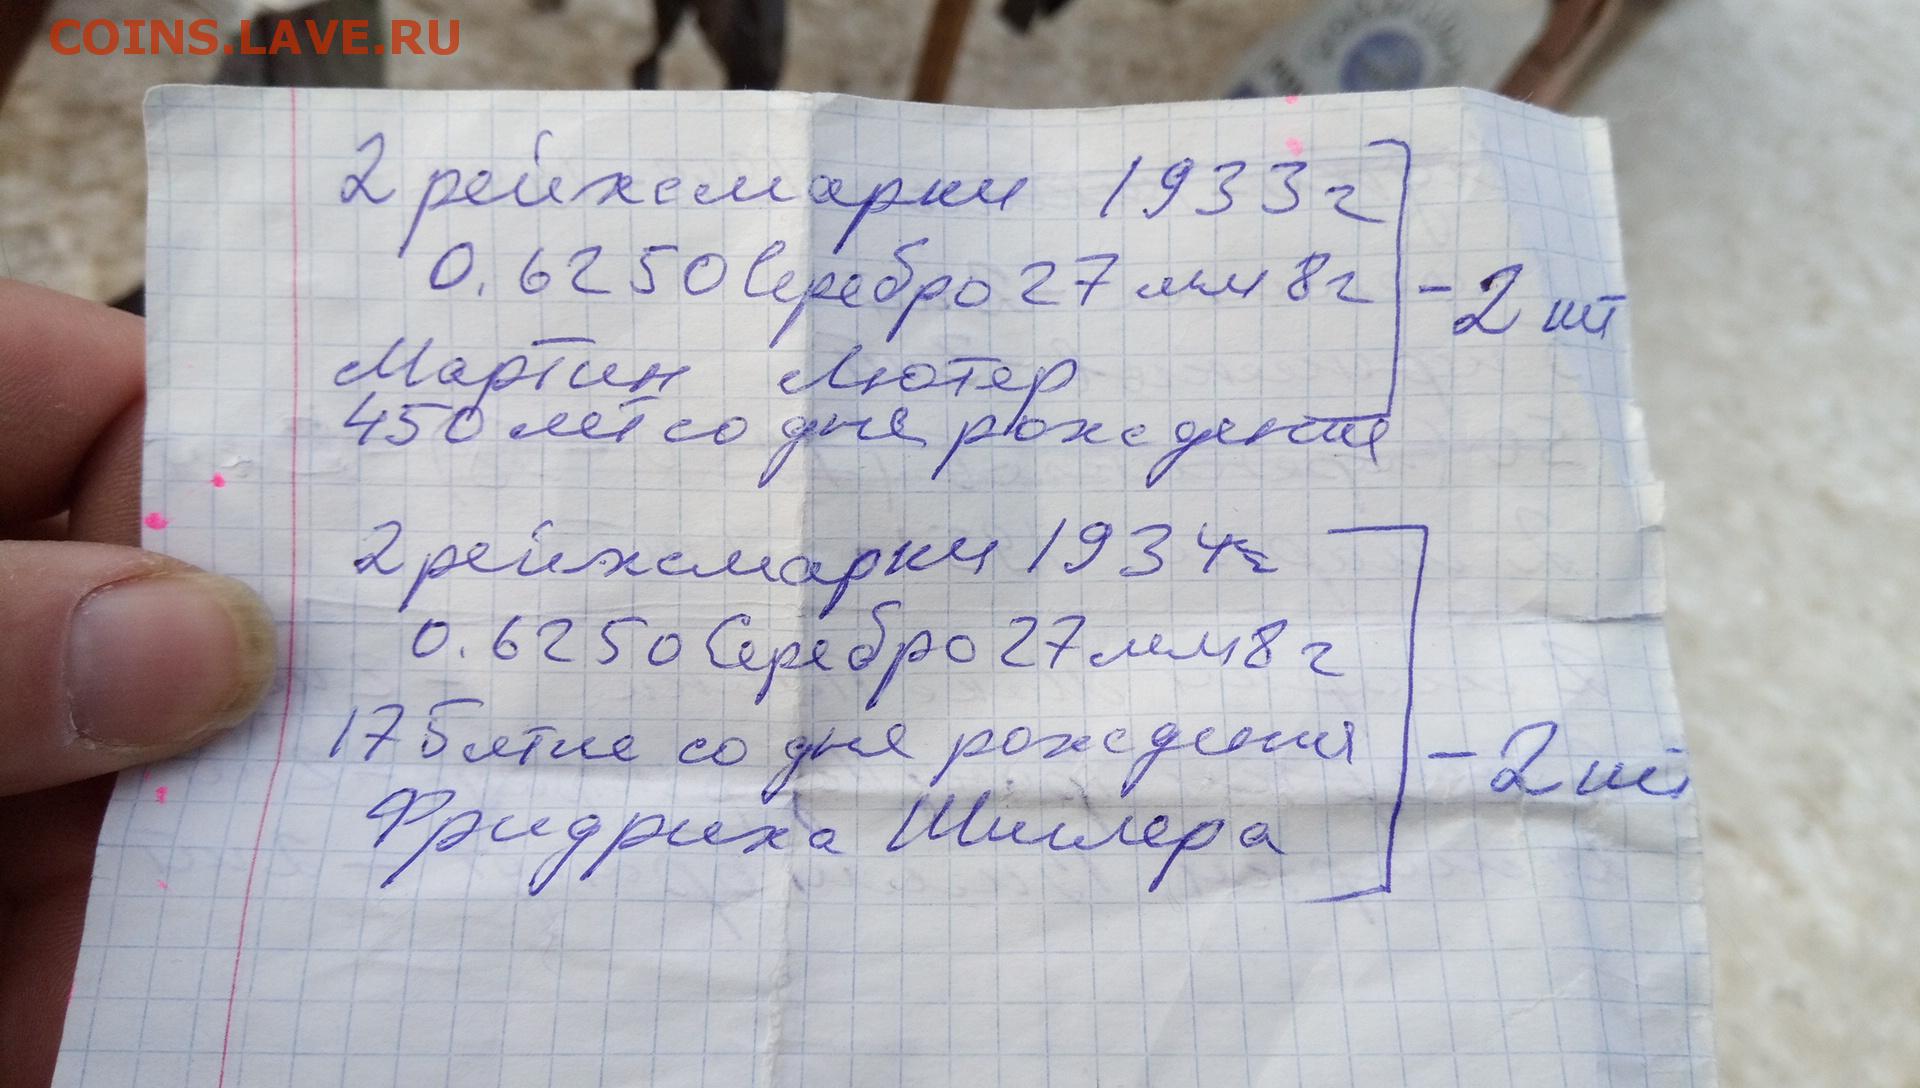 COINS.LAVE.RU
2 рейхсмарки 1933г
0.6250 Серебро 27 мм 8г
Мартин Лютер
450 лет со дня рождения
- 2 шт
2 рейхсмарки 1934г
0.6250 Серебро 27 мм 8г
175летие со дня рождения
Фридриха Шиллера
- 2 шт